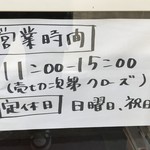 営業時間
11:00-15:00
(売切次第クローズ)
定休日 日曜日、祝日